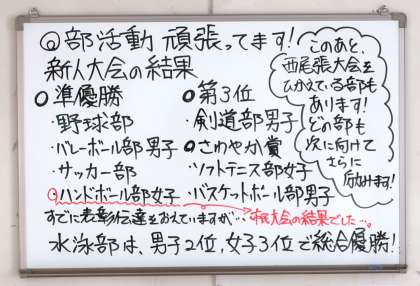 ◎部活動 頑張ってます!
新人大会の結果
○準優勝
・野球部
・バレーボール部男子
・サッカー部
○ハンドボール部女子
○第3位
・剣道部男子
○さわやか賞
・ソフトテニス部女子
・バスケットボール部男子
このあと、
西尾張大会を
ひかえている部も
あります!
どの部も
次に向けて
さらに
励みます!
すでに表彰伝達をおえていますが…
大会の結果でした…。
水泳部は、男子2位、女子3位で総合優勝!